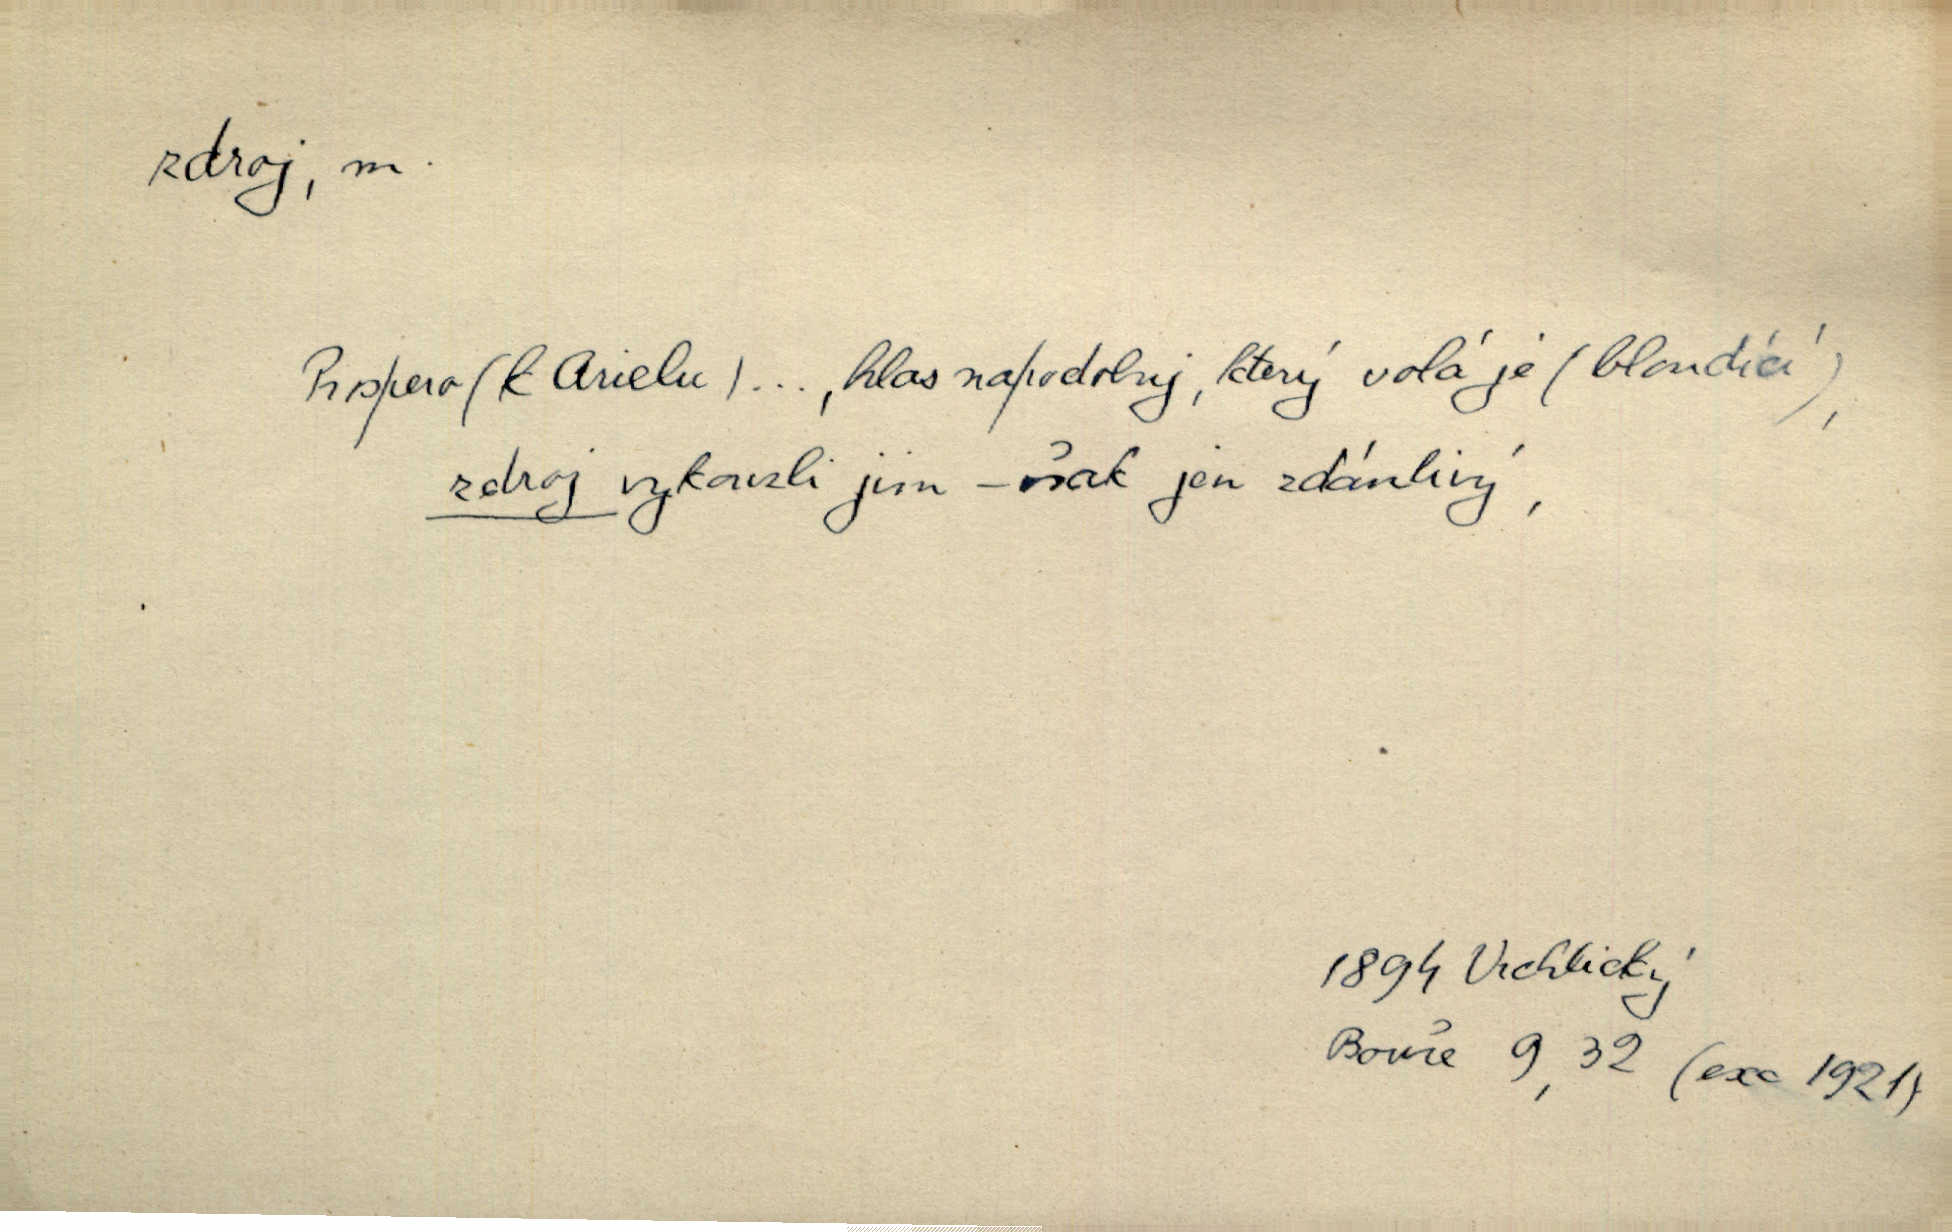 zdroj, m.
Prospero (k Arielu) ..., hlas napodobuj, který volá je (bloudící),
zdroj vykouzli jim – však jen zdánlivý,
1894 Vrchlický
Bouře 9, 32 (exc 1921)